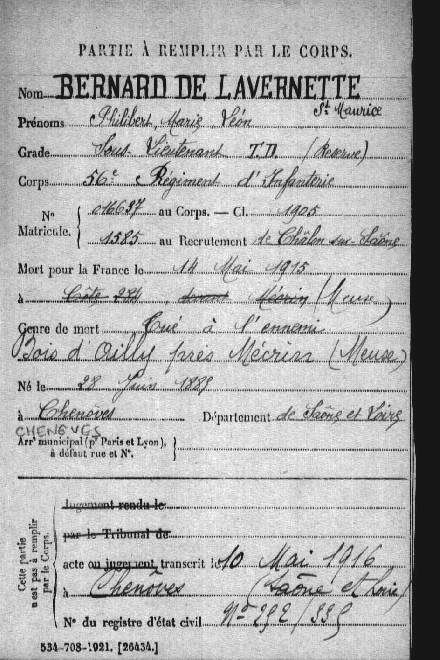 PARTIE À REMPLIR PAR LE CORPS.
Nom BERNARD DE LAVERNETTE
St Maurice
Prénoms Philibert Marie Léon
Grade Sous Lieutenant T.D. (Réserve)
Corps 56e Régiment d'Infanterie
N° Matricule. { 016637 au Corps. — Cl. 1905
1585 au Recrutement de Châlon sur-Saône
Mort pour la France le 14 Mai 1915
à Côte devant Mécrin (Meuse)
Genre de mort Tué à l'ennemi
Bois d'Ailly près Mécrin (Meuse)
Né le 28 Juin 1885
à Chenoves Département de Saône et Loire
CHENEVES
Arrt municipal (pr Paris et Lyon), à défaut rue et N°. }
Cette partie n'est pas à remplir par le Corps.
Jugement rendu le
par le Tribunal de
acte ou jugement transcrit le 10 Mai 1916
à Chenôves (Saône et Loire)
N° du registre d'état civil N° 292/335
534-708-1921. [26434.]